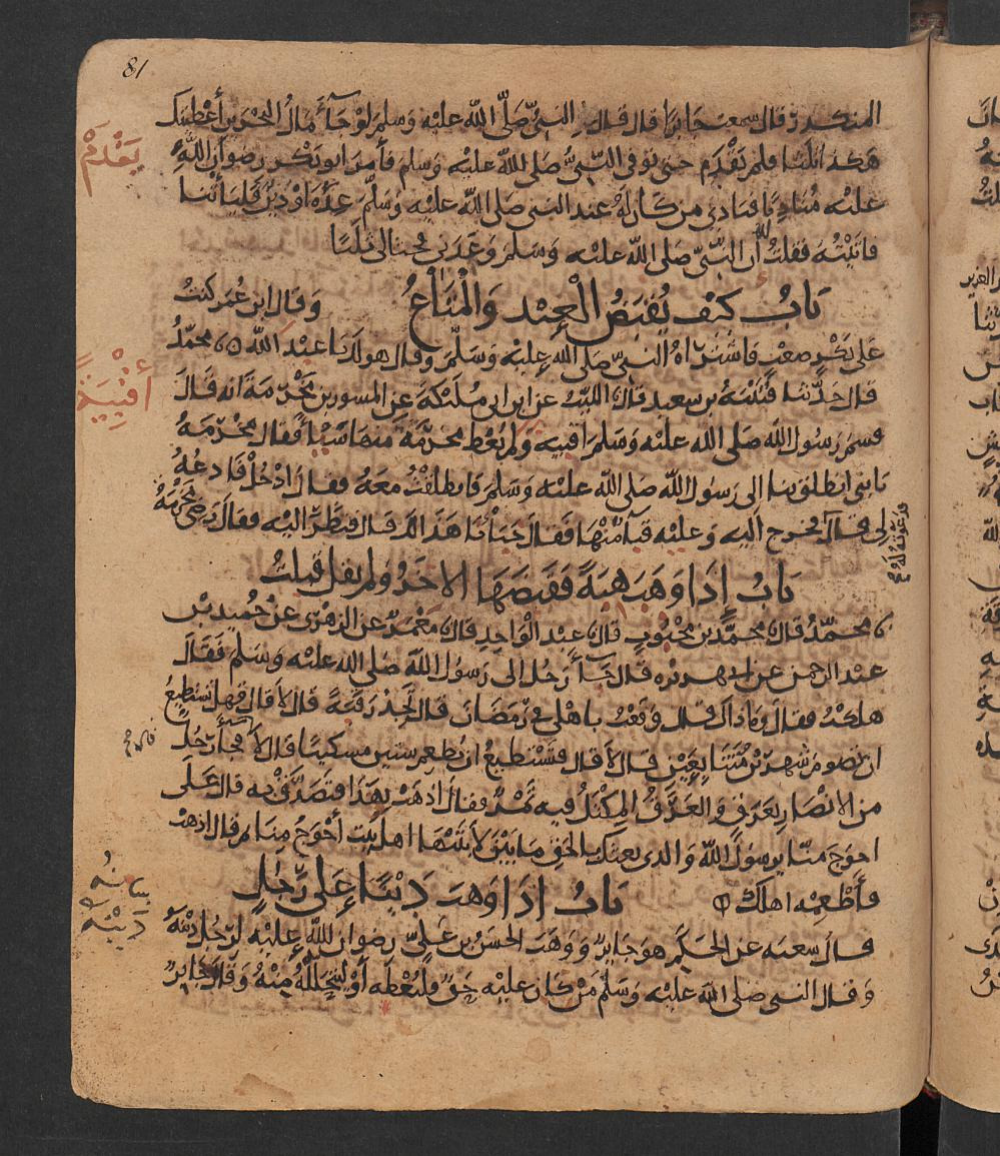 81
المنكدر قال سمعت جابرا قال قال النبي صلى الله عليه وسلم لو جاء مال البحرين أعطيتك
هكذا ثلثا فلم يقدم حتى توفي النبي صلى الله عليه وسلم فأمر ابو بكر رضوان الله
يقدم
عليه مناديا فنادى من كان له عند النبي صلى الله عليه وسلم عدة او دين فليأتنا
فاتيته فقلت أن النبي صلى الله عليه وسلم وعدني فحثا لي ثلثا
باب كيف يقبض العبد والمتاع وقال ابن عمر كنت
على بكر صعب فاشتراه النبي صلى الله عليه وسلم وقال هو لك يا عبد الله محمد
أقبية
قال حدثنا قتيبة بن سعيد قال الليث عن ابن ابي مليكة عن المسور بن مخرمة انه قال
قسم رسول الله صلى الله عليه وسلم اقبية ولم يعط مخرمة منها شيا فقال مخرمة
يا بني انطلق بنا الى رسول الله صلى الله عليه وسلم فانطلقت معه فقال ادخل فادعه
لي قال فخرج اليه وعليه قبا منها فقال خبأنا هذا لك قال فنظر اليه فقال رضي مخرمة
فدعوته له
باب إذا وهب هبة فقبضها الاخر ولم يقل قبلت
محمد قال محمد بن محبوب قال عبد الواحد قال معمر عن الزهري عن حميد بن
عبد الرحمن عن ابي هريرة قال جاء رجل الى رسول الله صلى الله عليه وسلم فقال
هلكت فقال وما ذاك قال وقعت باهلي في رمضان قال تجد رقبة قال لا قال فهل تستطيع
ان تصوم شهرين متتابعين قال لا قال فتستطيع ان تطعم ستين مسكينا قال لا فجاء رجل
من الانصار بعرق والعرق المكتل فيه تمر فقال اذهب بهذا فتصدق به قال على
احوج منا يرسول الله والذي بعثك بالحق ما بين لابتيها اهل بيت أحوج منا ثم قال اذهب
فأطعمه اهلك
باب اذا وهب دينا على رجل
دينه
قال شعبة عن الحكم هو جايز ووهب الحسن بن علي رضوان الله عليه لرجل دينه
وقال النبي صلى الله عليه وسلم من كان عليه حق فليعطه أو ليتحلله منه وقال جابر